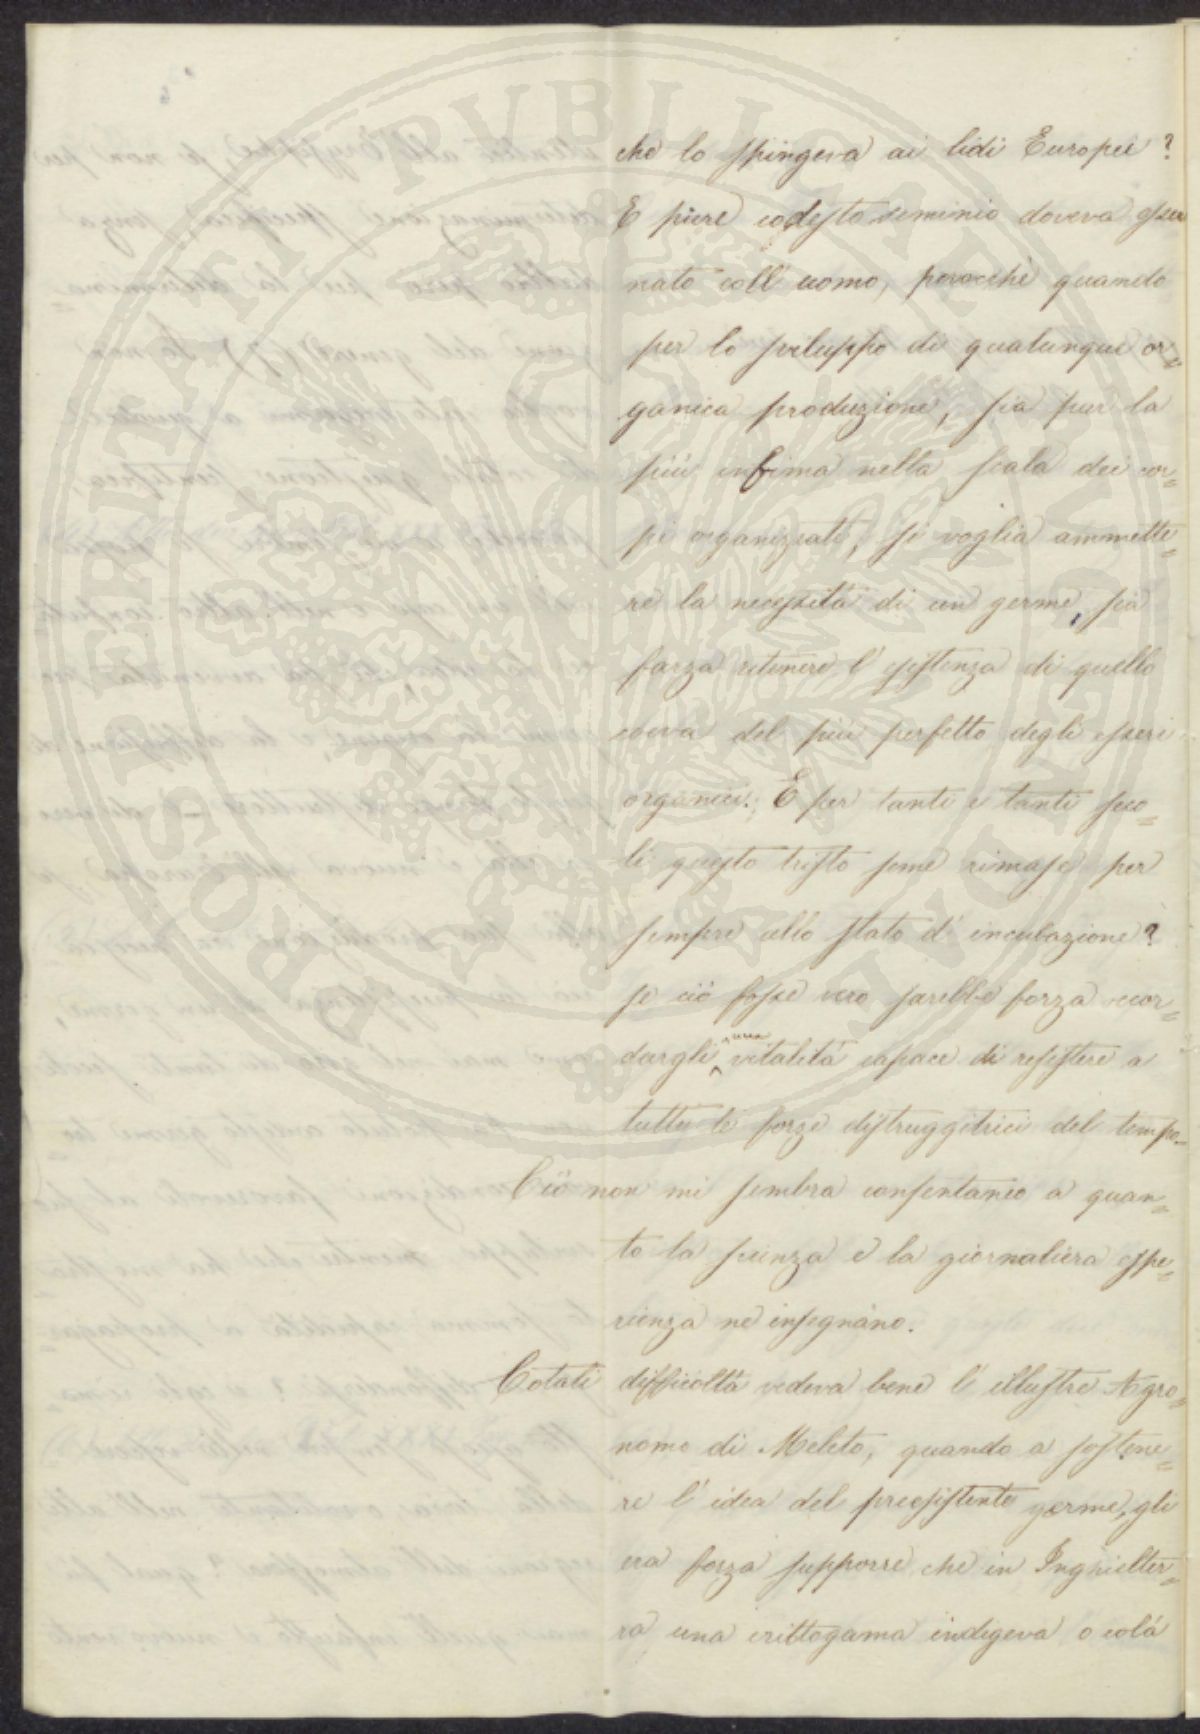 che lo spingeva ai lidi Europei?
E pure codesto seminio doveva esser
nato coll' uomo, perocchè quando
per lo sviluppo di qualunque or=
ganica produzione, sia pur la
più infima nella scala dei cor=
pi organizzati, si voglia ammette=
re la necessità di un germe, sia
forza ritenere l' esistenza di quello
coeva del più perfetto degli esseri
organici. E per tanti e tanti seco=
li questo tristo seme rimase per
sempre allo stato d' incubazione?
se ciò fosse vero sarebbe forza accor=
dargli una vitalità capace di resistere a
tutte le forze distruggitrici del tempo.
Ciò non mi sembra consentaneo a quan=
to la scienza e la giornaliera espe=
rienza ne insegnano.
Cotali difficoltà vedeva bene l' illustre Agro=
nomo di Meleto, quando a sostene=
re l' idea del preesistente germe, gli
era forza supporre che in Inghilter=
ra una crittogama indigeva o colà
PROSPERITATI PVBLICAE AVGENDAE